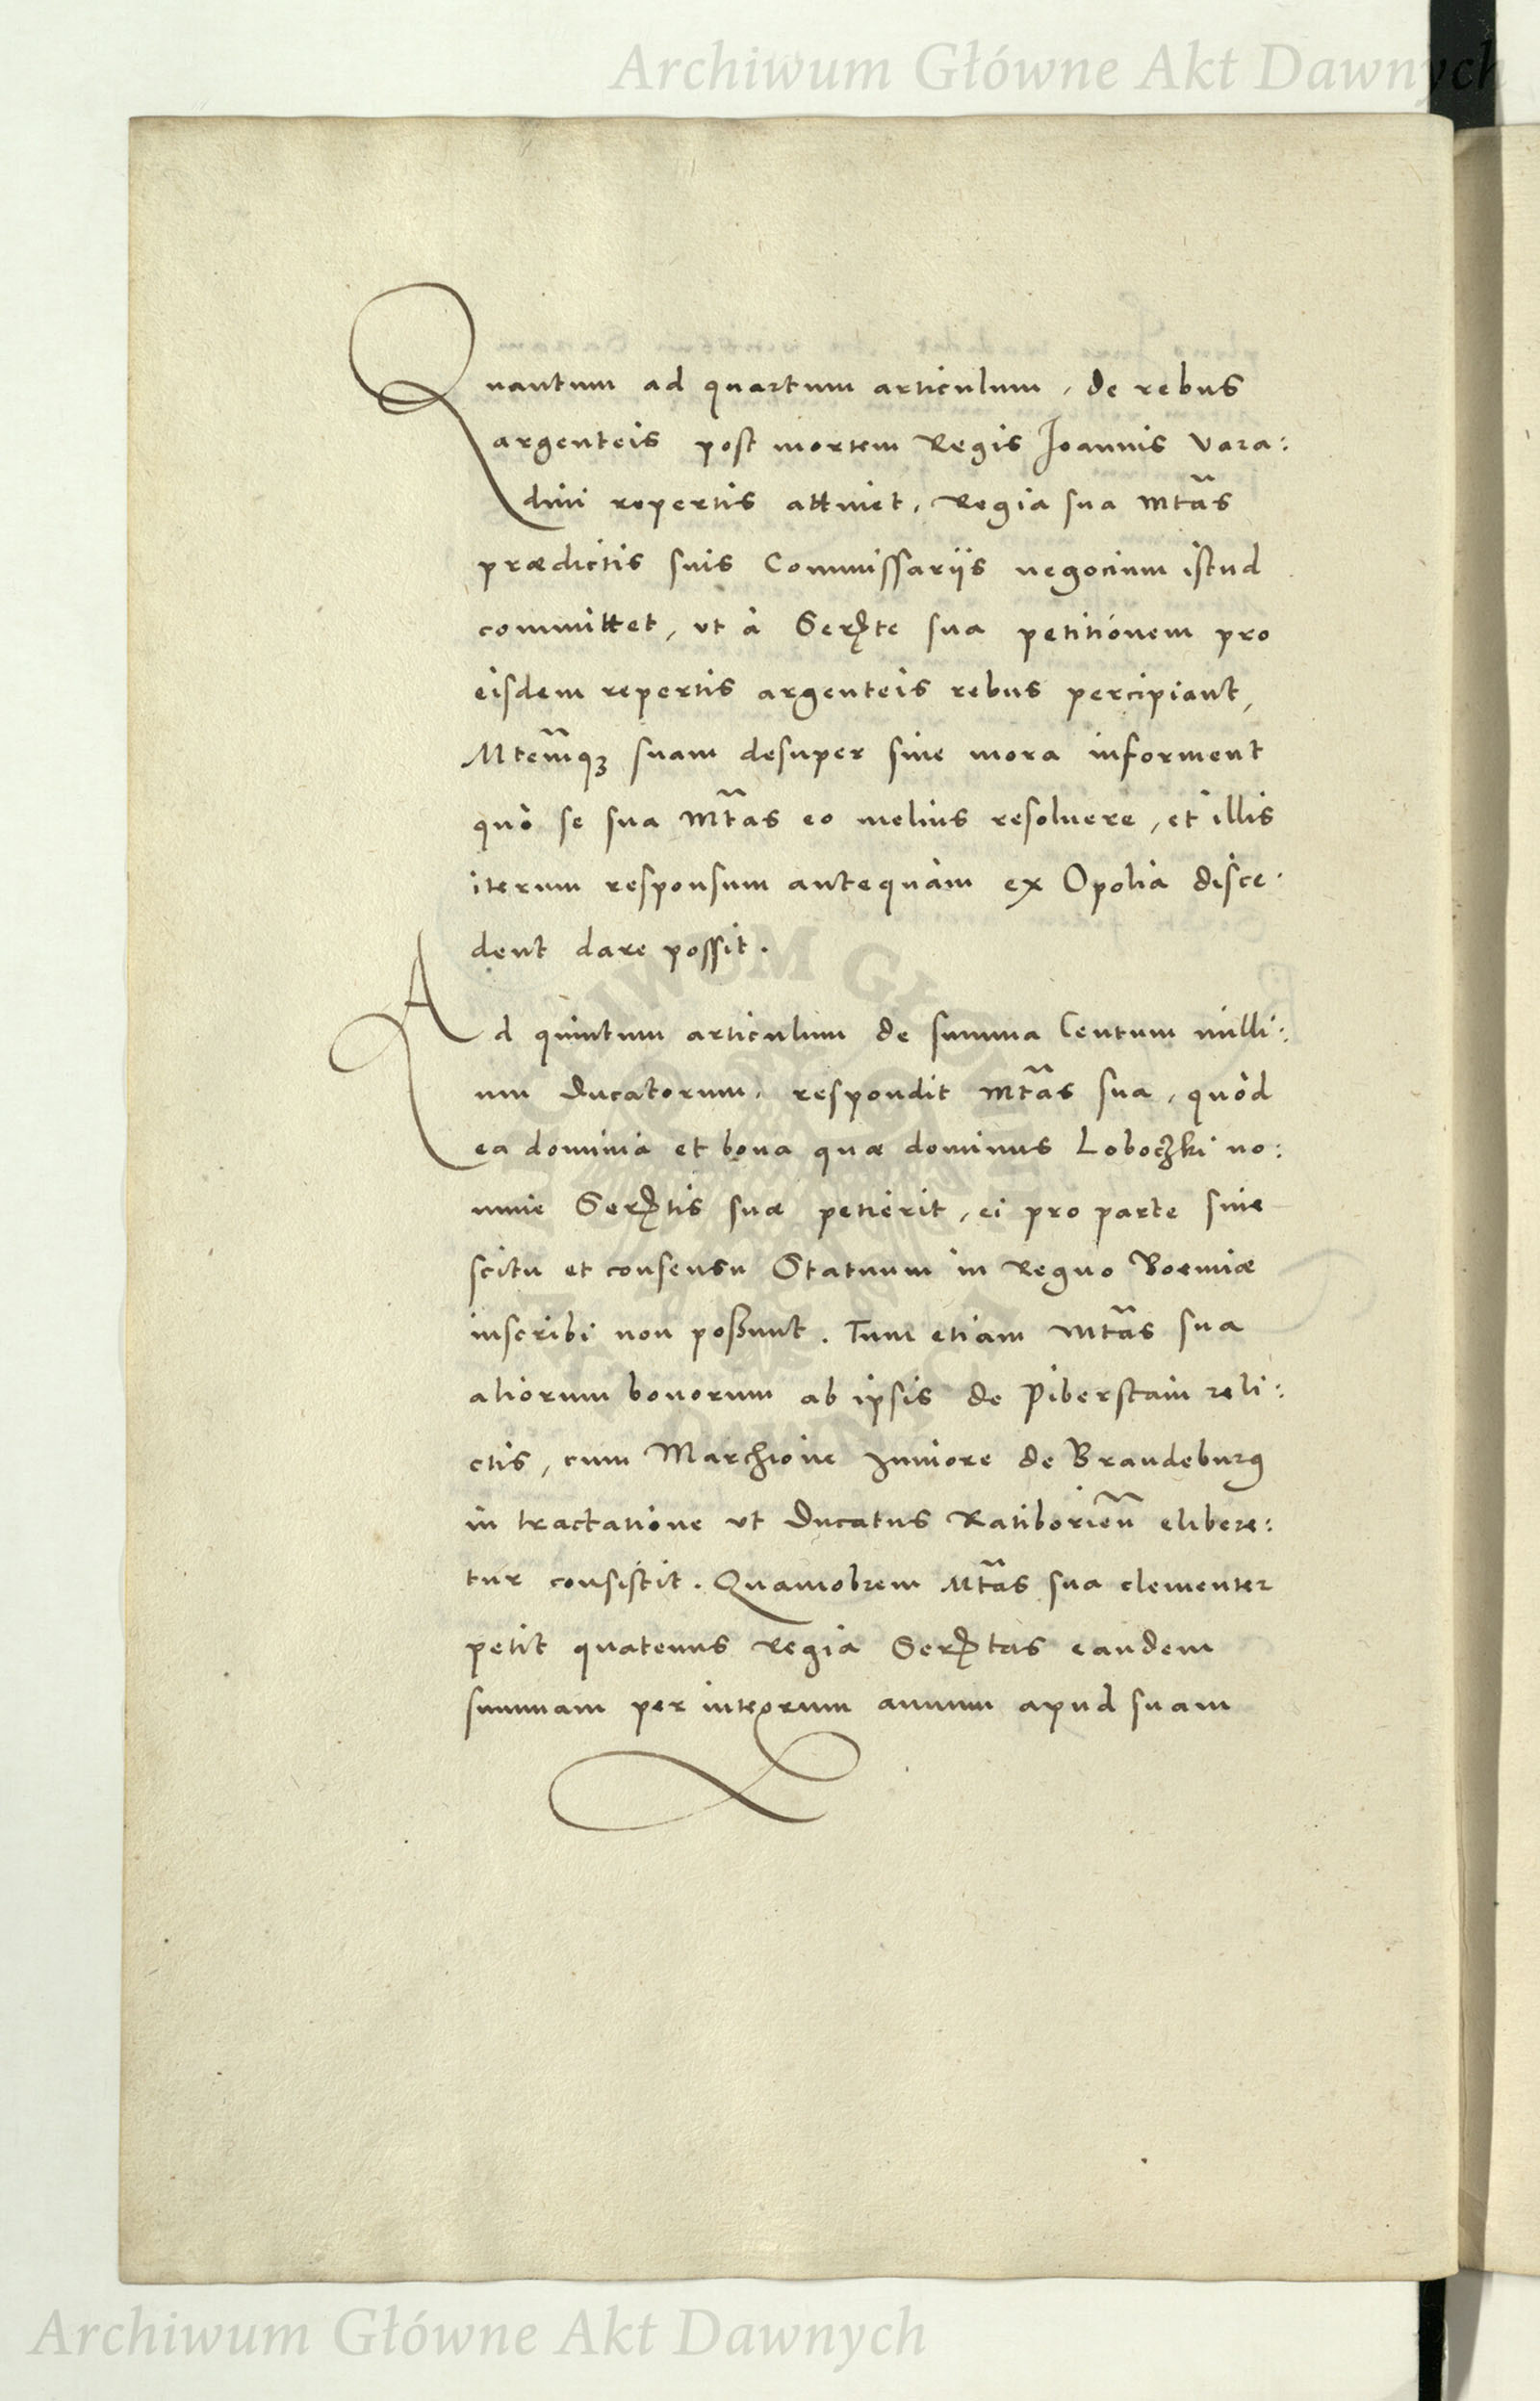 Archiwum Główne Akt Dawnych
Quantum ad quartum articulum, de rebus
argenteis post mortem Regis Joannis Vara:
dini repertis attinet, Regia sua Mtas
prædictis suis Commissariis negocium istud
committet, ut à Serᵗᵉ sua petitionem pro
eisdem repertis argenteis rebus percipiant,
Mtemq3 suam desuper sine mora informent
quò se sua Mtas eo melius resoluere, et illis
iterum responsum antequàm ex Opolia disce:
dent dare possit.
Ad quintum articulum de summa Centum milli:
um Ducatorum, respondit Mtas sua, quòd
ea dominia et bona quæ dominus Loboczki no:
mine Serᵗⁱˢ suæ petierit, ei pro parte sine
scitu et consensu Statuum in Regno Boemiæ
inscribi non poßunt. Tum etiam Mtas sua
aliorum bonorum ab ipsis de Piberstain reli:
ctis, cum Marchione Juniore de Brandeburg
in tractatione ut Ducatus Ratiborien elibere:
tur consistit. Quamobrem Mtas sua clementer
petit quatenus Regia Serᵗᵃˢ eandem
summam per integrum annum apud suam
Archiwum Główne Akt Dawnych